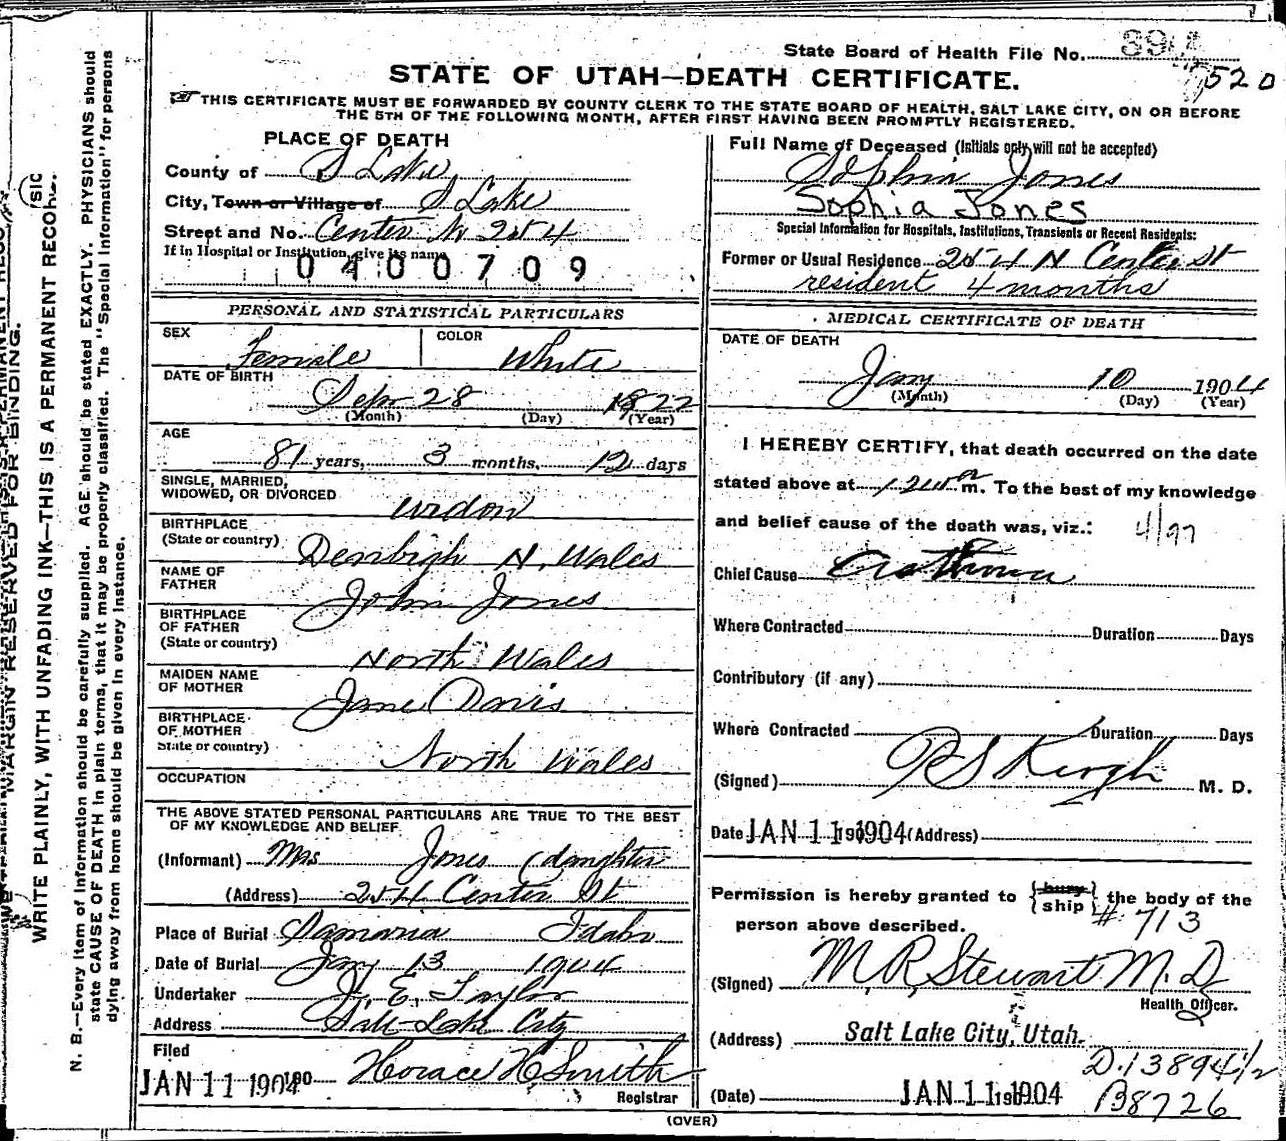 State Board of Health File No. 894
520
STATE OF UTAH—DEATH CERTIFICATE.
THIS CERTIFICATE MUST BE FORWARDED BY COUNTY CLERK TO THE STATE BOARD OF HEALTH, SALT LAKE CITY, ON OR BEFORE
THE 5TH OF THE FOLLOWING MONTH, AFTER FIRST HAVING BEEN PROMPTLY REGISTERED.
PLACE OF DEATH
County of S Lake
City, Town or Village of S Lake
Street and No. Center N 254
If in Hospital or Institution, give its name
0400709
PERSONAL AND STATISTICAL PARTICULARS
SEX Female COLOR White
DATE OF BIRTH
Sep 28 1822
(Month) (Day) (Year)
AGE
81 years, 3 months, 12 days
SINGLE, MARRIED,
WIDOWED, OR DIVORCED widow
BIRTHPLACE
(State or country) Denbigh N. Wales
NAME OF
FATHER John Jones
BIRTHPLACE
OF FATHER
(State or country) North Wales
MAIDEN NAME
OF MOTHER Jane Davis
BIRTHPLACE
OF MOTHER
State or country) North Wales
OCCUPATION
THE ABOVE STATED PERSONAL PARTICULARS ARE TRUE TO THE BEST
OF MY KNOWLEDGE AND BELIEF
(Informant) Mrs Jones (daughter
(Address) 254 Center St
Place of Burial Samaria Idaho
Date of Burial Jany 13 1904
Undertaker J. E. Taylor
Address Salt Lake City
Filed
JAN 11 1904 190 Horace H. Smith
Registrar
Full Name of Deceased (Initials only will not be accepted)
Sophia Jones
Sophia Jones
Special Information for Hospitals, Institutions, Transients or Recent Residents:
Former or Usual Residence 254 N Center St
resident 4 months
MEDICAL CERTIFICATE OF DEATH
DATE OF DEATH
Jany 10 1904
(Month) (Day) (Year)
I HEREBY CERTIFY, that death occurred on the date
stated above at m. To the best of my knowledge
and belief cause of the death was, viz.: 4/97
Chief Cause Asthma
Where Contracted Duration Days
Contributory (if any)
Where Contracted Duration Days
(Signed) M. D.
Date JAN 11 1904 190 (Address)
Permission is hereby granted to {bury ship} the body of the
person above described. # 713
(Signed) M. R. Stewart M. D.
Health Officer.
(Address) Salt Lake City, Utah.
D. 13894 1/2
(Date) JAN 11 1904 190 B8726
(OVER)
MARGIN RESERVED FOR BINDING.
WRITE PLAINLY, WITH UNFADING INK—THIS IS A PERMANENT RECORD.
(SIC
N. B.—Every item of information should be carefully supplied. AGE should be stated EXACTLY. PHYSICIANS should
state CAUSE OF DEATH in plain terms, that it may be properly classified. The "Special Information" for persons
dying away from home should be given in every instance.